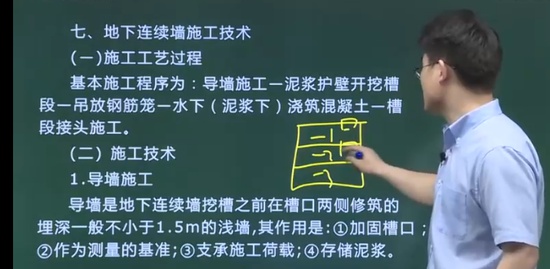 七、地下连续墙施工技术
(一)施工工艺过程
基本施工程序为：导墙施工—泥浆护壁开挖槽
段—吊放钢筋笼—水下（泥浆下）浇筑混凝土—槽
段接头施工。
(二) 施工技术
1.导墙施工
导墙是地下连续墙挖槽之前在槽口两侧修筑的
埋深一般不小于1.5m的浅墙,其作用是:①加固槽口；
②作为测量的基准;③支承施工荷载;④存储泥浆。